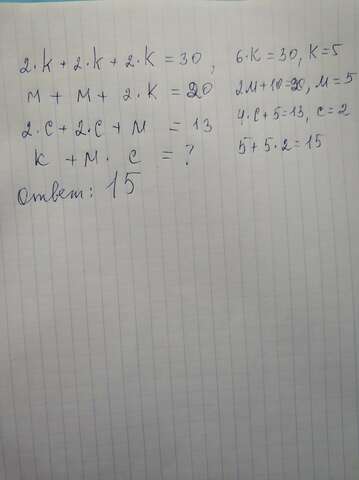 2·k + 2·k + 2·k = 30, 6·k = 30, k = 5
м + м + 2·k = 20 2м+10=20, м = 5
2·c + 2·c + м = 13 4·c+5=13, c = 2
k + м · c = ? 5+5·2=15
Ответ: 15